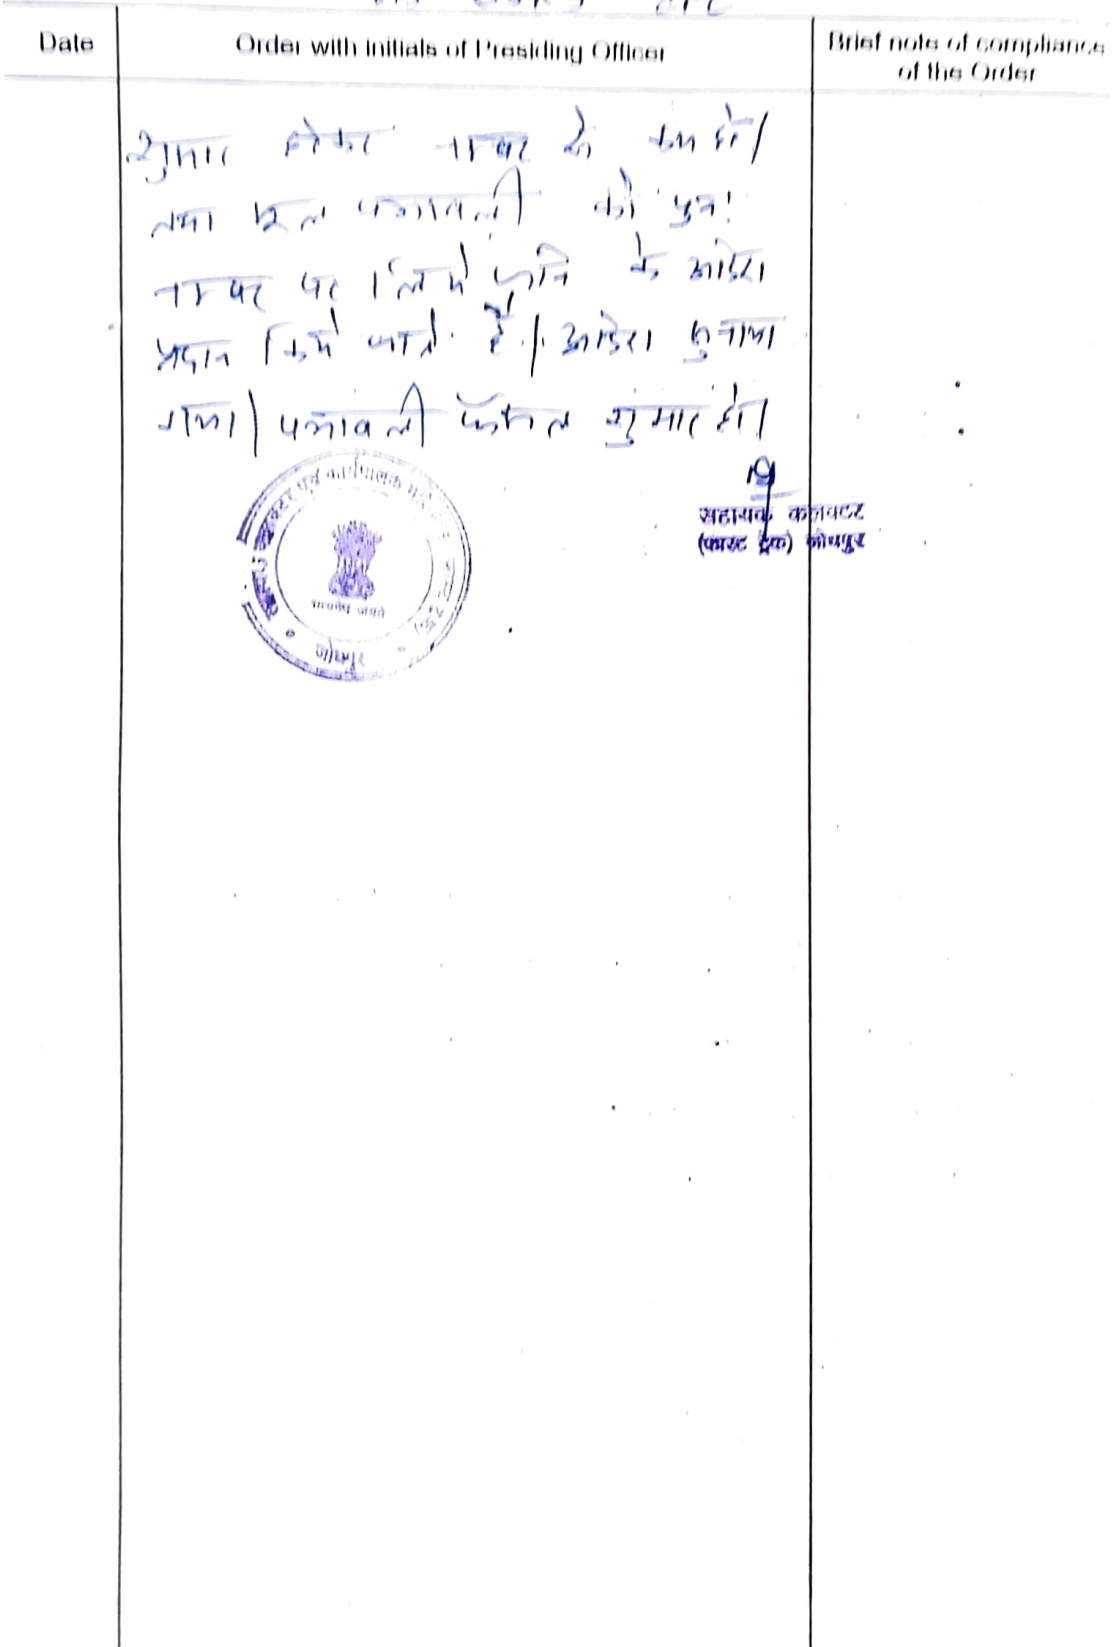 Date
Order with initials of Presiding Officer
Brief note of compliance
of the Order
शुमार होकर नम्बर से कम हो।
तथा मूल पत्रावली को पुन:
नम्बर पर लिये जाने के आदेश
प्रदान किये जाते है। आदेश सुनाया
गया। पत्रावली फैसल शुमार हो।
सहायक कलक्टर
(फास्ट ट्रेक) जोधपुर
जोधपुर